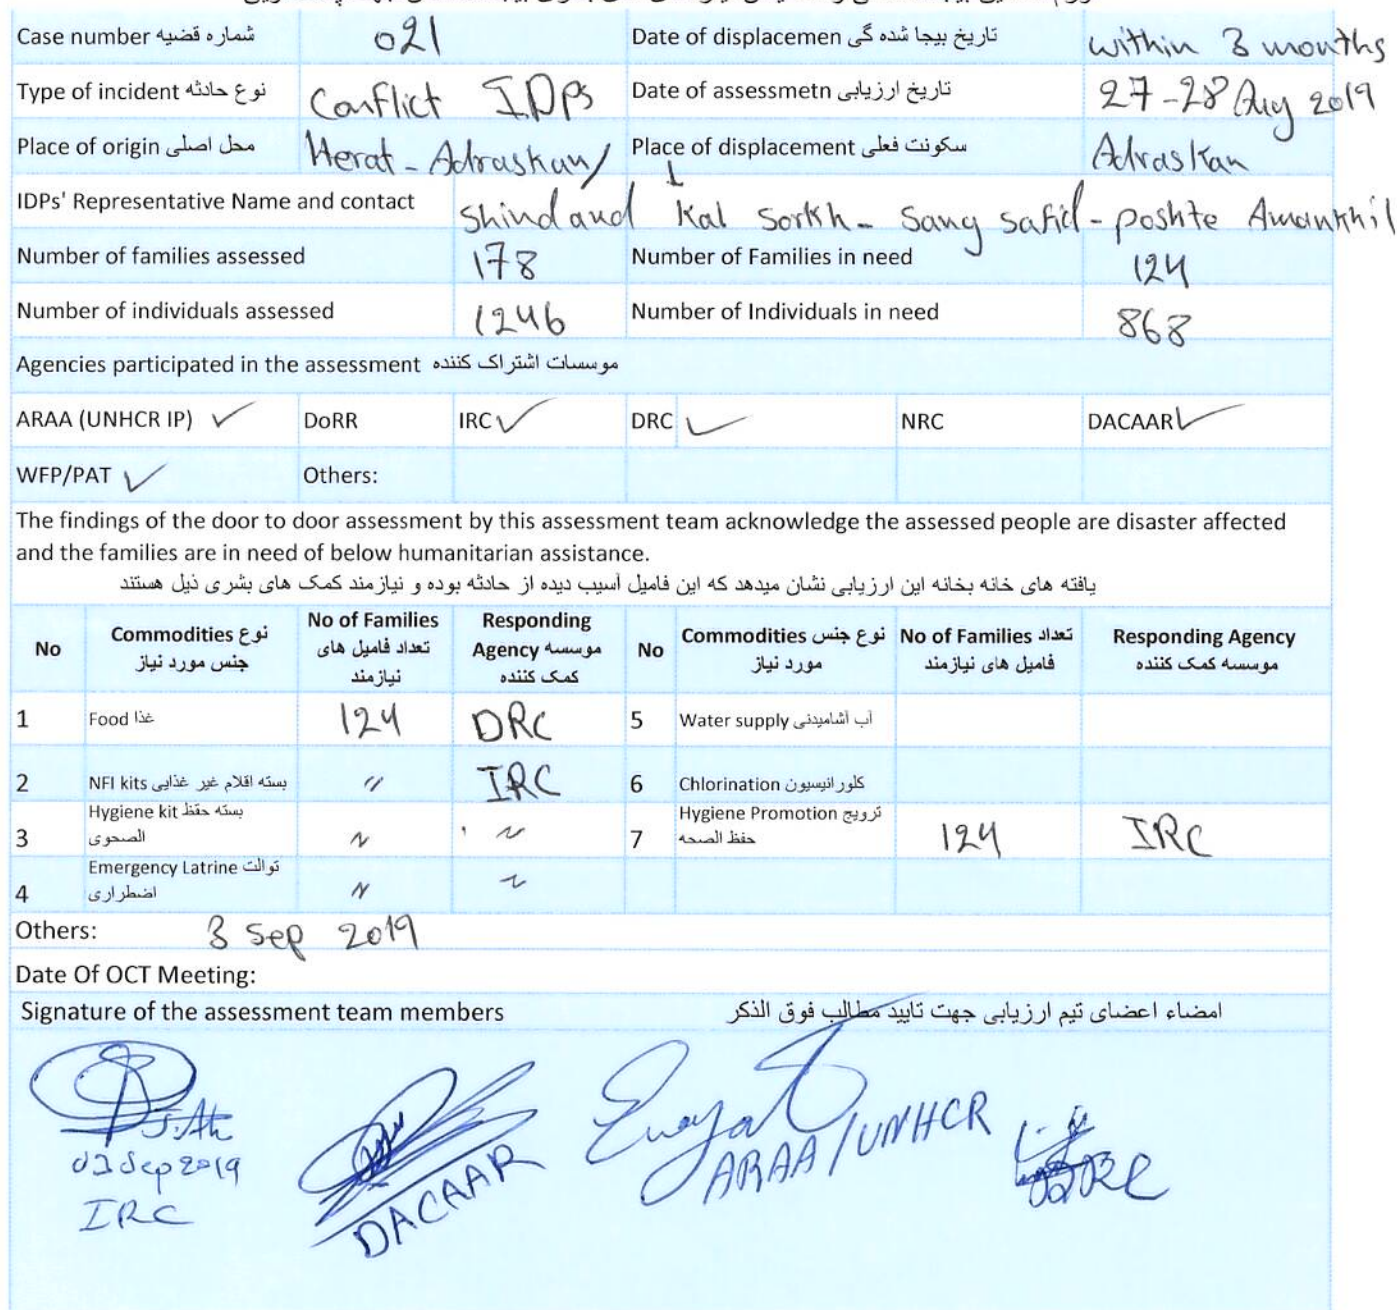 Case number شماره قضیه 021 Date of displacemen تاریخ بیجا شده گی within 3 months
Type of incident نوع حادثه Conflict IDPs Date of assessmetn تاریخ ارزیابی 27-28 Aug 2019
Place of origin محل اصلی Herat - Adraskan/ Place of displacement سکونت فعلی Adraskan
IDPs' Representative Name and contact Shindand Kal Sorkh - Sang safid - poshte Amankhil
Number of families assessed 178 Number of Families in need 124
Number of individuals assessed 1246 Number of Individuals in need 868
Agencies participated in the assessment موسسات اشتراک کننده
ARAA (UNHCR IP) ✓ DoRR IRC ✓ DRC ✓ NRC DACAAR ✓
WFP/PAT ✓ Others:
The findings of the door to door assessment by this assessment team acknowledge the assessed people are disaster affected
and the families are in need of below humanitarian assistance.
یافته های خانه بخانه این ارزیابی نشان میدهد که این فامیل آسیب دیده از حادثه بوده و نیازمند کمک های بشری ذیل هستند
No Commodities نوع جنس مورد نیاز No of Families تعداد فامیل های نیازمند Responding Agency موسسه کمک کننده No Commodities نوع جنس مورد نیاز No of Families تعداد فامیل های نیازمند Responding Agency موسسه کمک کننده
1 Food غذا 124 DRC 5 Water supply آب آشامیدنی
2 NFI kits بسته اقلام غیر غذایی " IRC 6 Chlorination کلورانیسیون
3 Hygiene kit بسته حفظ الصحوی " " 7 Hygiene Promotion ترویج حفظ الصحه 124 IRC
4 Emergency Latrine توالت اضطراری " "
Others: 3 Sep 2019
Date Of OCT Meeting:
Signature of the assessment team members امضاء اعضای تیم ارزیابی جهت تایید مطالب فوق الذکر
Enayat
ARAA/UNHCR
Sep 2019
IRC
DACAAR
DRC